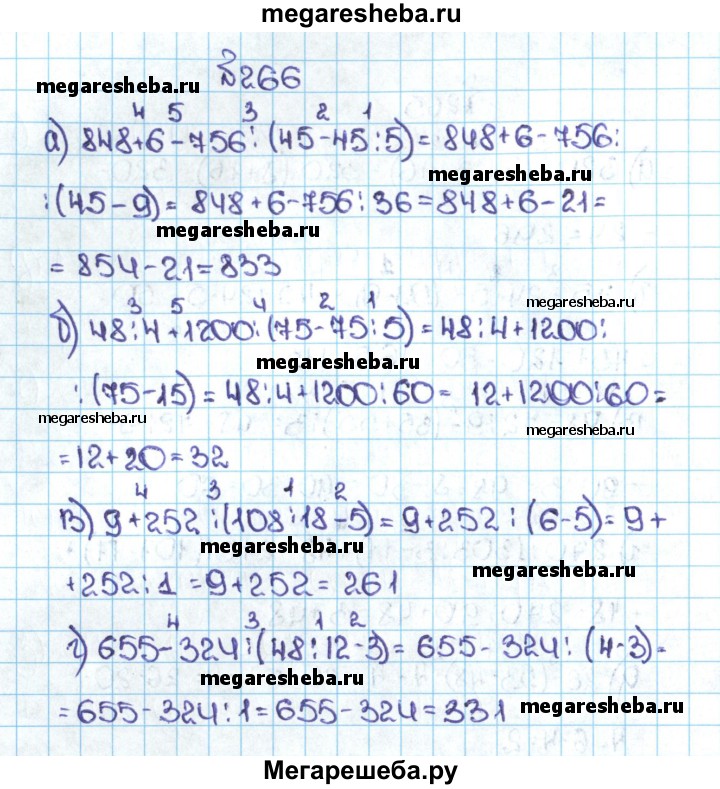 megaresheba.ru
№266
megaresheba.ru
4 5 3 2 1
а) 848+6-756:(45-45:5)=848+6-756:
megaresheba.ru
:(45-9)=848+6-756:36=848+6-21=
megaresheba.ru
=854-21=833
3 5 4 2 1
megaresheba.ru
б) 48:4+1200:(75-75:5)=48:4+1200:
megaresheba.ru
:(75-15)=48:4+1200:60= 12+1200:60=
megaresheba.ru
megaresheba.ru
=12+20=32
4 3 1 2
в) 9+252:(108:18-5)=9+252:(6-5)=9+
megaresheba.ru
megaresheba.ru
+252:1=9+252=261
4 3 1 2
г) 655-324:(48:12-3)=655-324:(4-3)=
megaresheba.ru
=655-324:1=655-324=331
megaresheba.ru
Мегарешеба.ру